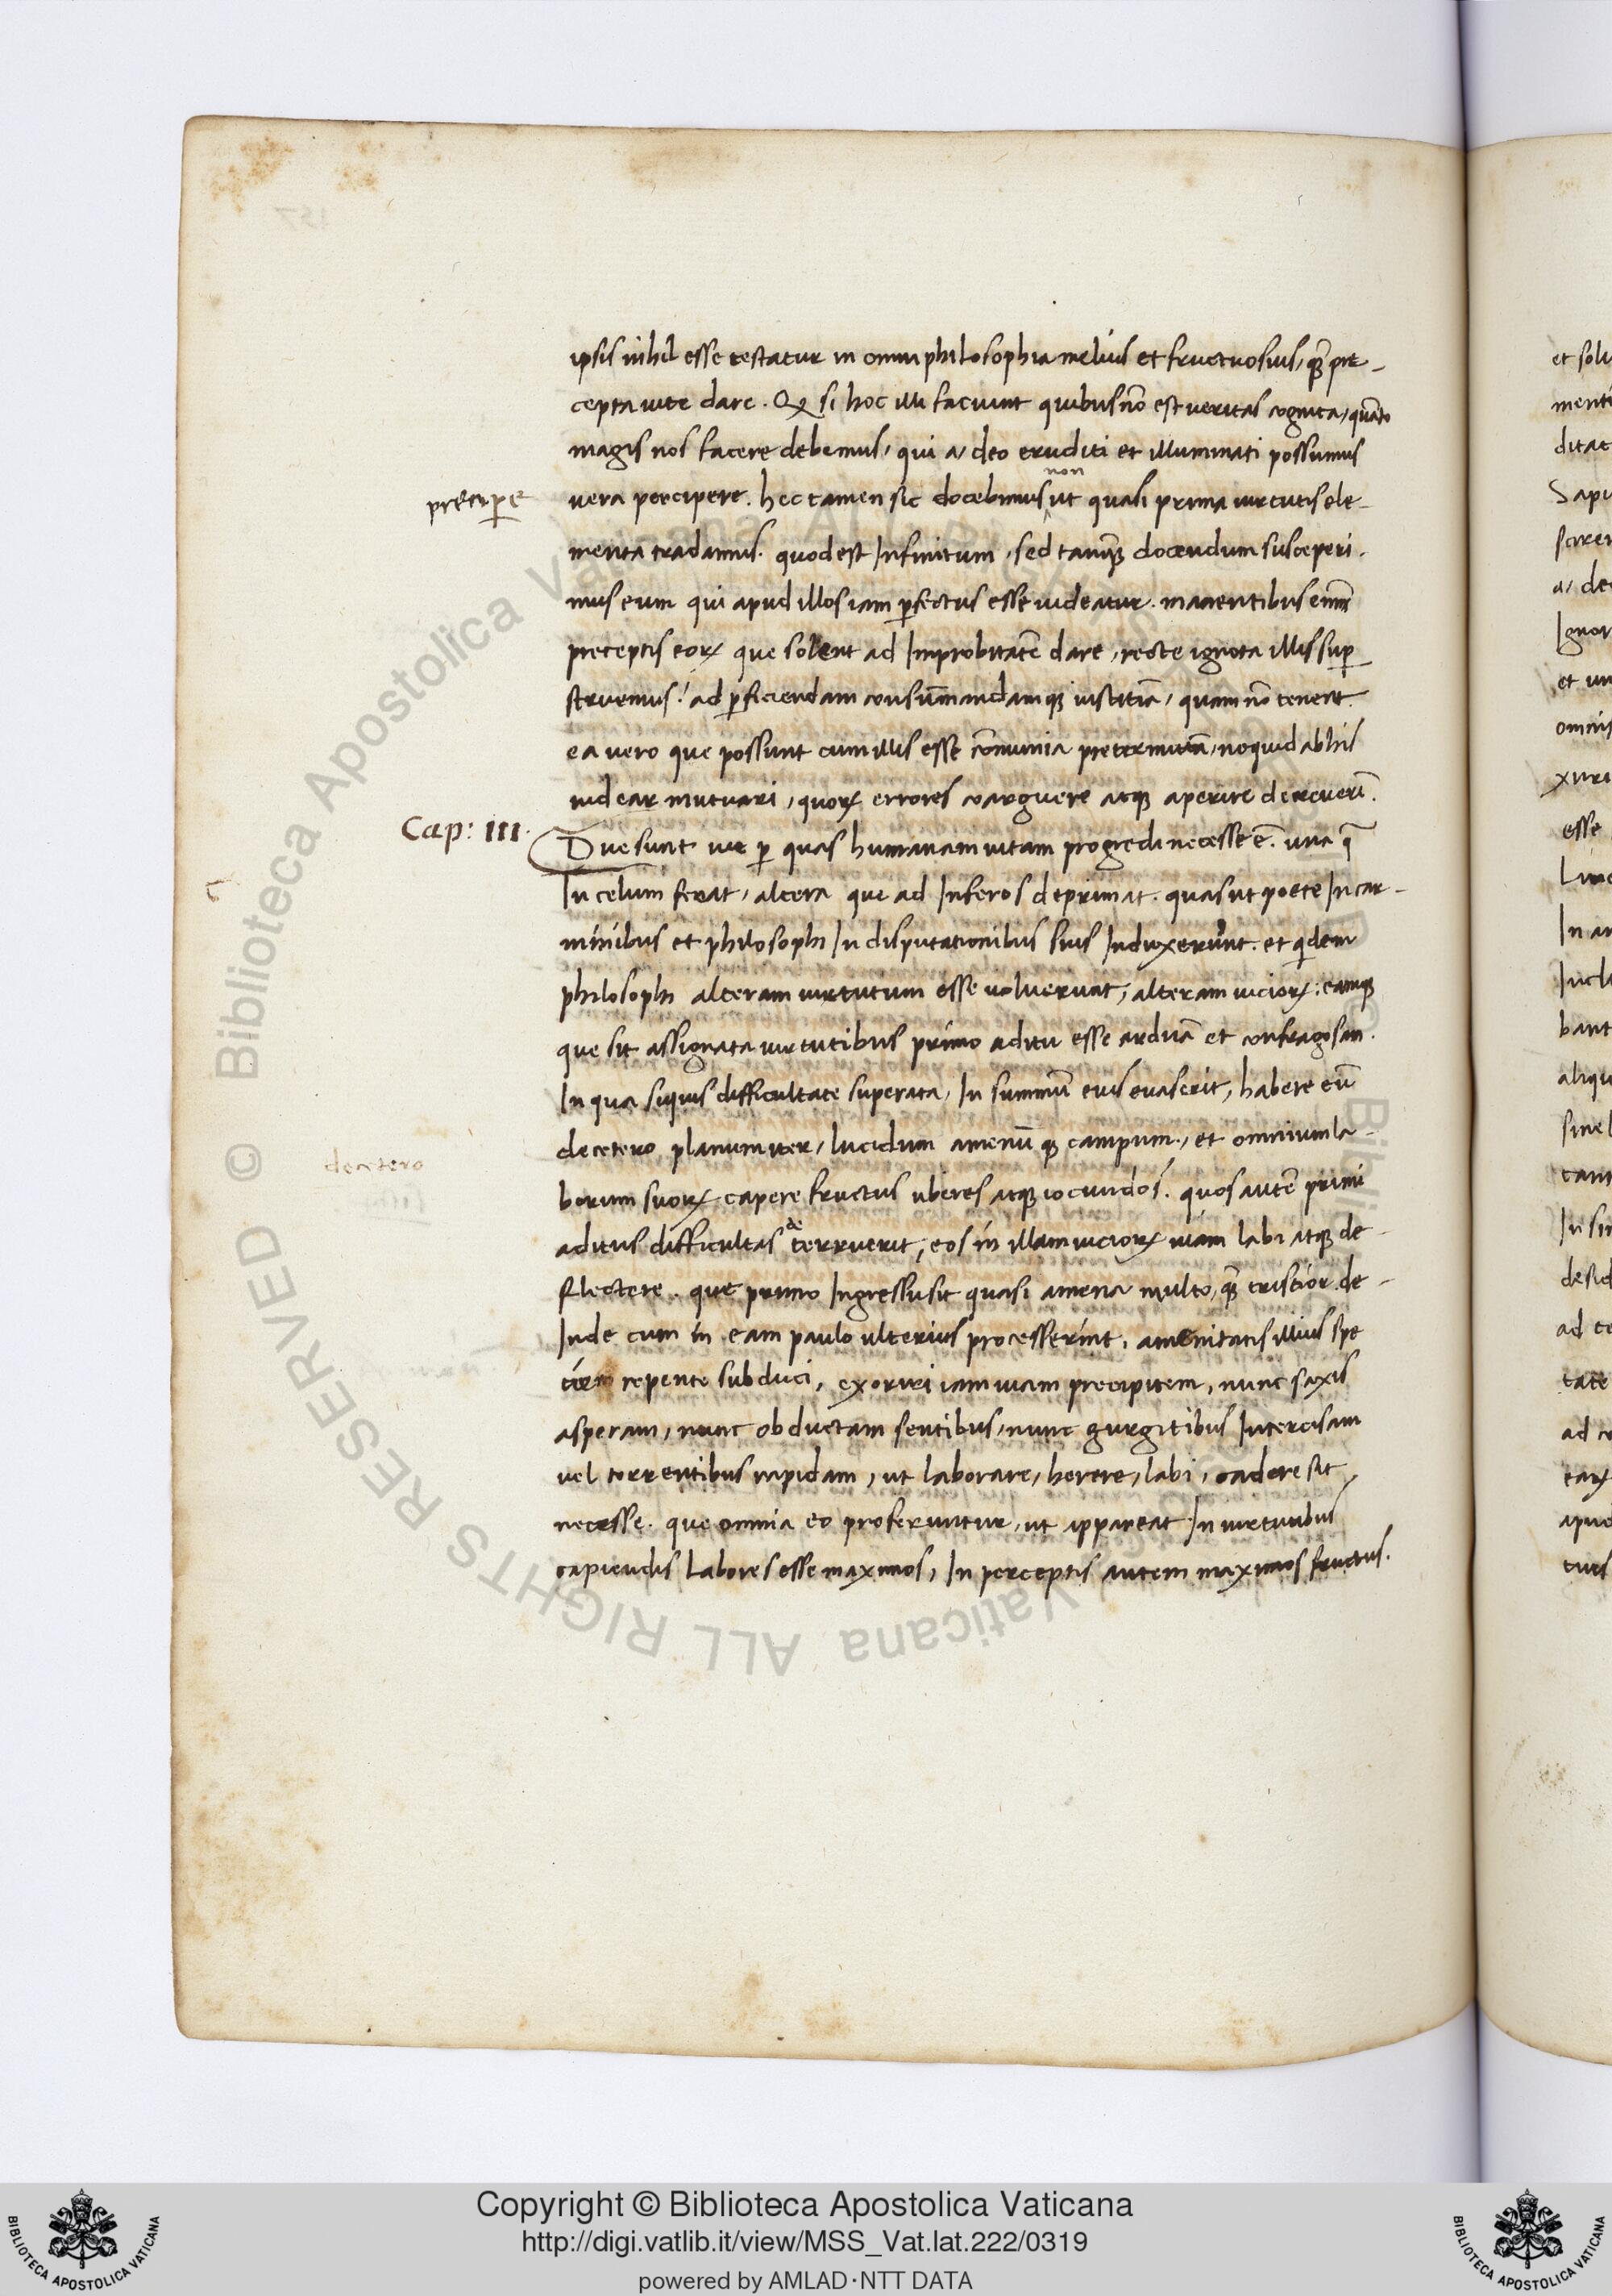 ipsis nihil esse testatur in omni philosophia melius et fructuosius, quā pre-
cepta uite dare. Qd si hoc illi faciunt quibus nō est ueritas cognita, quāto
magis nos facere debemus, qui a, deo eruditi et illuminati possumus
precipere
uera percipere. hec tamen sic docebimus non ut quasi prima uirtutis ele-
menta tradamus. quod est Infinitum, sed tamqꝫ docendum susceperi-
mus eum qui apud illos iam ꝑfectus esse uideatur. manentibus enim
preceptis eoꝝ que solent ad Improbitatē dare, recte ignota illis suꝑ
struemus! ad ꝑficiendam consūmandamqꝫ iustitiā, quam nō tenent.
ea uero que possunt cum illis esse cōmunia pretermittā, ne quid ab his
uidear mutuari, quoꝝ errores coarguere atqꝫ aperire decreuerī.
Cap: III.
Due sunt uie ꝑ quas humanam uitam progredi necesse ē. una q̄
In celum ferat, altera que ad Inferos deprimat. quas ut poete In car-
minibus et philosophi In disputationibus suis Induxerunt. et quidem
philosophi alteram uirtutum esse uoluerunt, alteram uicioꝝ: eamqꝫ
que sit assignata uirtutibus primo aditu esse arduā et confragosam.
In qua siquis difficultate superata, In summū eius euaserit, habere eū
decetero
decetero planum iter, lucidum amenūqꝫ campum, et omnium la-
borum suoꝝ capere fructus uberes atqꝫ iocundos. quos autē primi
aditus difficultas deterruerit, eos in illam uicioꝝ uiam labi atqꝫ de-
flectere. que primo Ingressu sit quasi amena multo, qꝫ tristior. de-
Inde cum in eam paulo ulterius processerint, amenitatis illius spe
repente subduci, exoriri iam uiam precipitem, nunc saxis
asperam, nunc obductam sentibus, nunc gurgitibus Intercisam
uel torrentibus rapidam, ut laborare, herere, labi, cadere sit
necesse. que omnia eo proferuntur, ut appareat In uirtutibus
capiendis Labores esse maximos, In perceptis autem maximos fructus.
et solu
menti
ditat
Sapi
a, de
Ignor
omnis
xuri
esse
In an
bant
aliqu
sine l
In sin
desid
ad ce
tate
ad co
eaꝝ
apud
tues
© Biblioteca Apostolica Vaticana ALL RIGHTS RESERVED
Copyright © Biblioteca Apostolica Vaticana
http://digi.vatlib.it/view/MSS_Vat.lat.222/0319
powered by AMLAD·NTT DATA
BIBLIOTECA APOSTOLICA VATICANA
BIBLIOTECA APOSTOLICA VATICANA